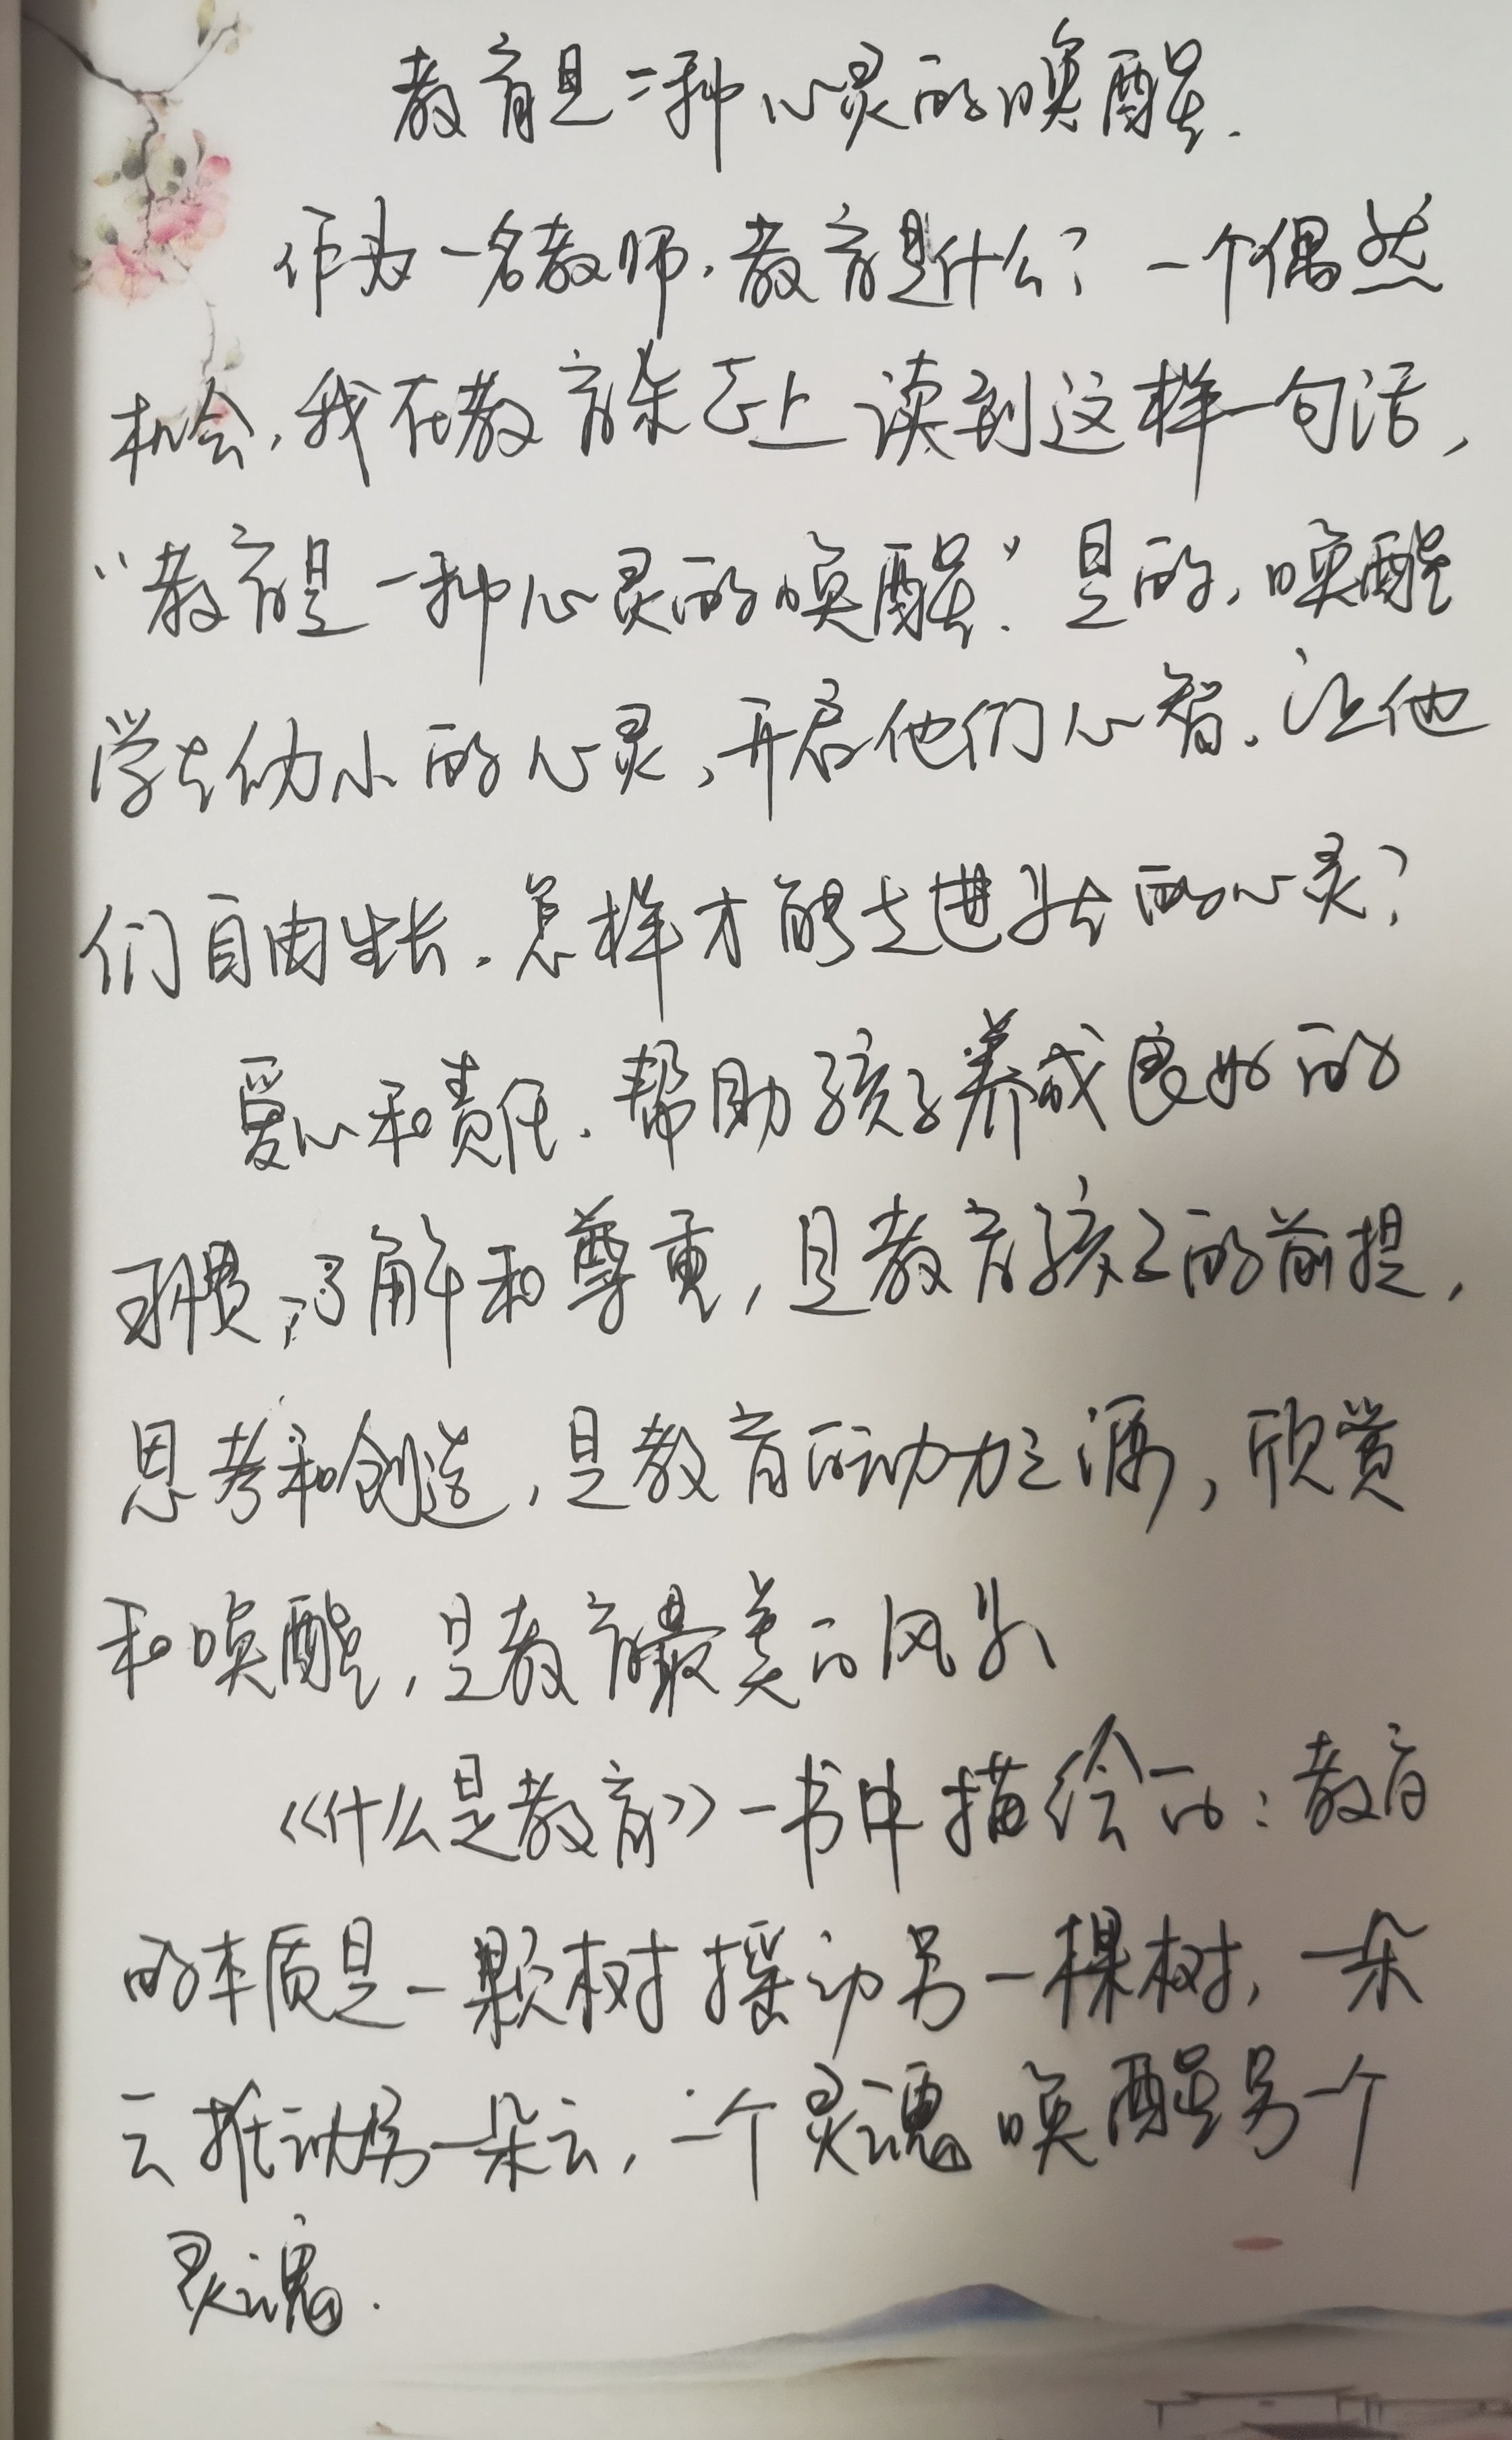 教育是一种心灵的唤醒.
作为一名教师,教育是什么?一个偶然
机会,我在教育杂志上读到这样一句话,
“教育是一种心灵的唤醒.”是的,唤醒
学生幼小的心灵,开启他们心智.让他
们自由生长.怎样才能走进学生的心灵?
爱心和责任.帮助孩子养成良好的
习惯,了解和尊重,是教育孩子的前提,
思考和创造,是教育的动力之源,欣赏
和唤醒,是教育最美的风景
《什么是教育》一书中描绘的:教育
的本质是一颗树摇动另一棵树,一朵
云推动另一朵云,一个灵魂唤醒另一个
灵魂.